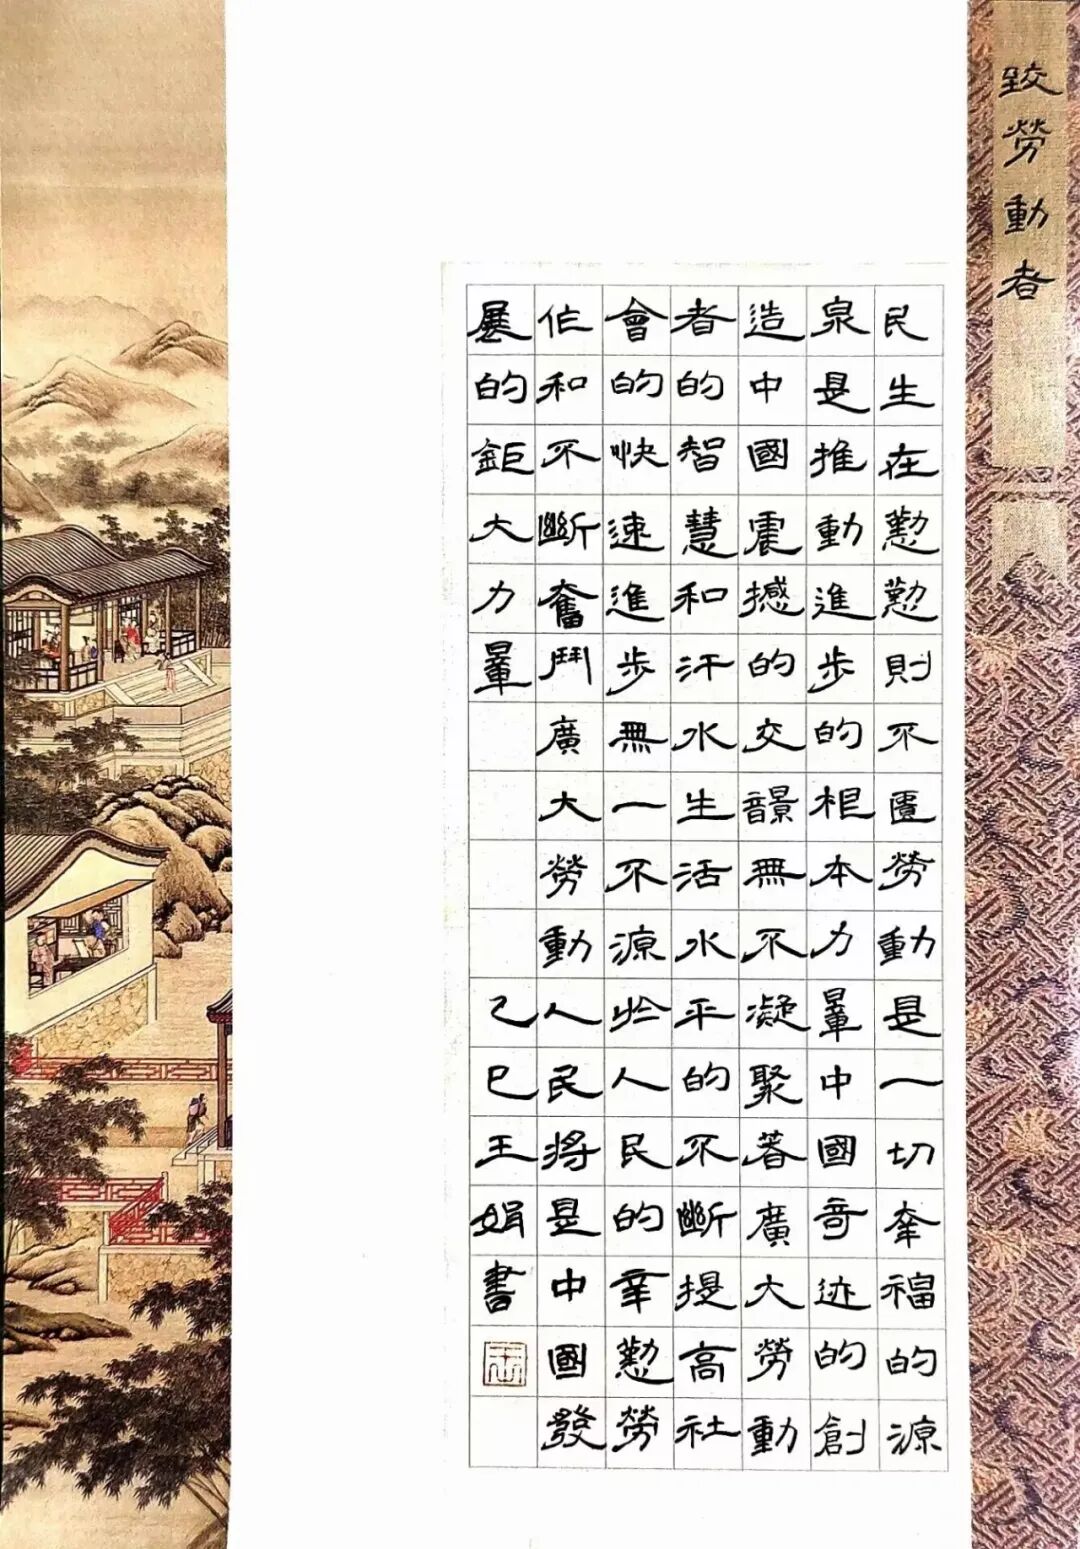 致勞動者
民生在懃懃則不匱勞動是一切幸福的源
泉是推動進步的根本力量中國奇迹的創
造中國震撼的交響無不凝聚著廣大勞動
者的智慧和汗水生活水平的不斷提高社
會的快速進步無一不源於人民的辛懃勞
作和不斷奮鬥廣大勞動人民將是中國發
展的鉅大力量 乙巳王娟書